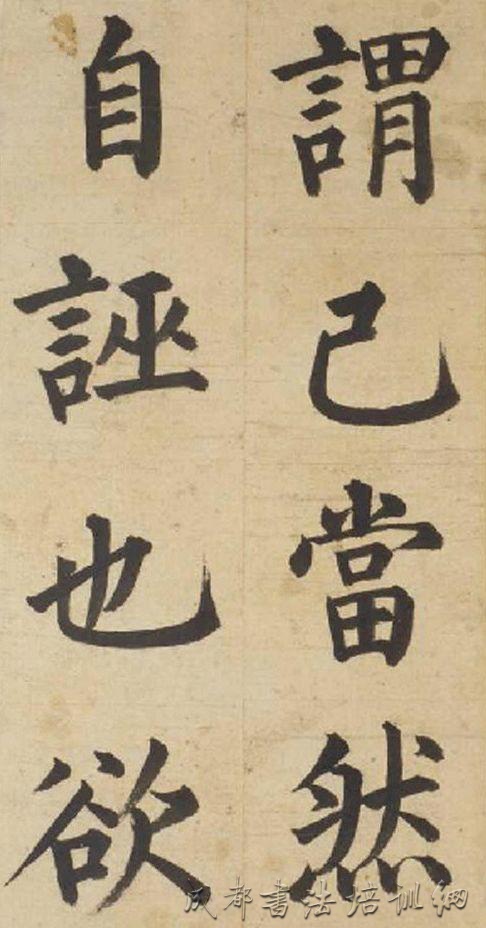 謂己當然
自誣也欲
成都书法培训網